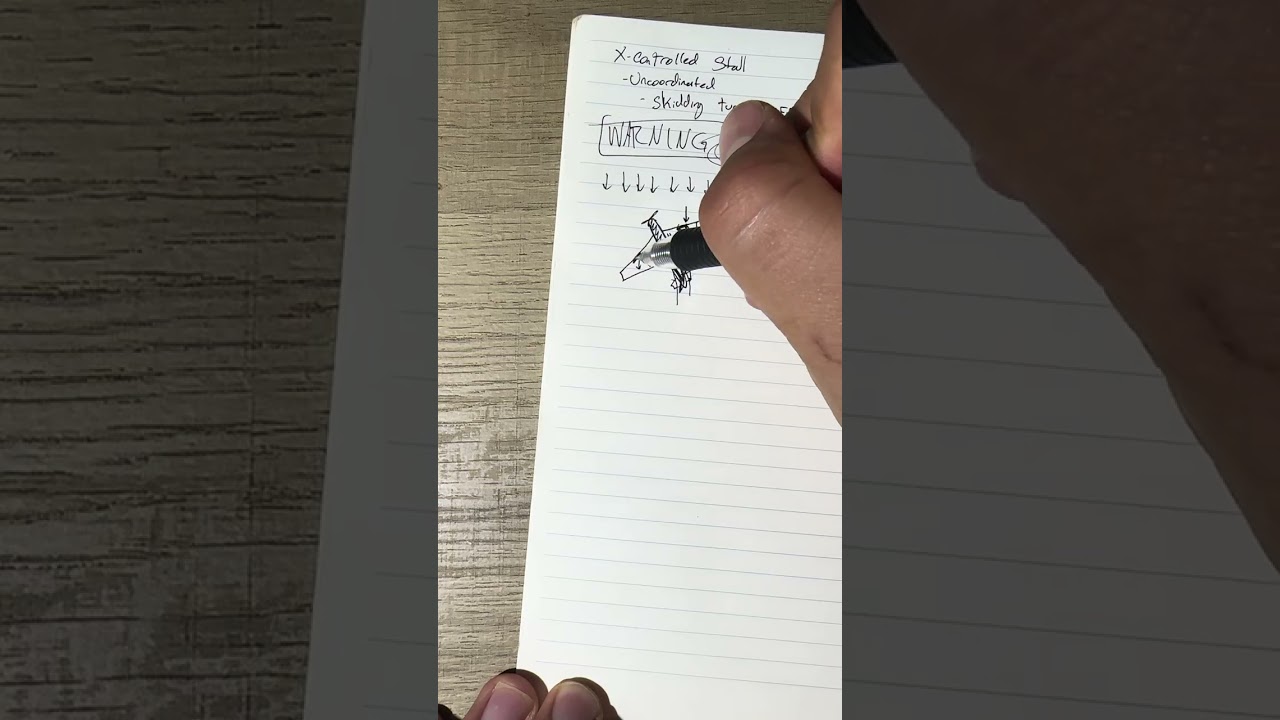 X-Controlled Stall
- Uncoordinated
- Skidding
WARNING